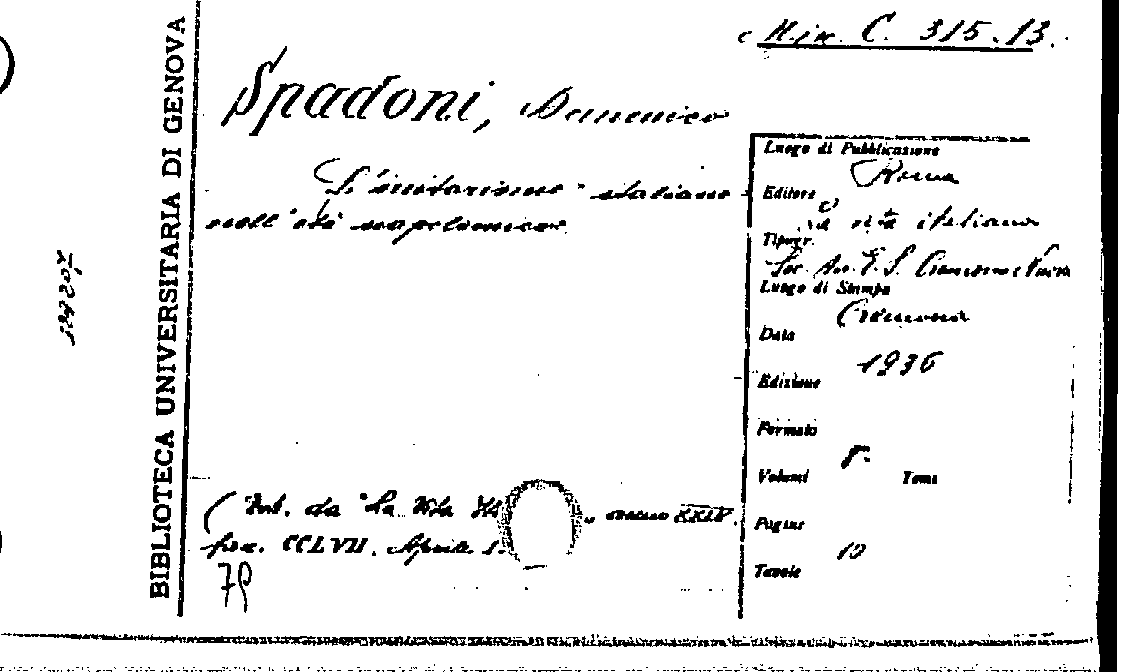 Min. C. 315.13.
Spadoni, Domenico
L'unitarismo italiano
nell'età napoleonica.
(Est. da "La Vita It", anno XXIV.
fasc. CCLVII. Aprile
79
BIBLIOTECA UNIVERSITARIA DI GENOVA
Luogo di Pubblicazione
Roma
Editore
La vita italiana
Tipogr.
Soc. An. E. S. Cremona Nuova
Luogo di Stampa
Cremona
Data
1936
Edizione
Formato
8°
Volumi Tomi
Pagine
10
Tavole